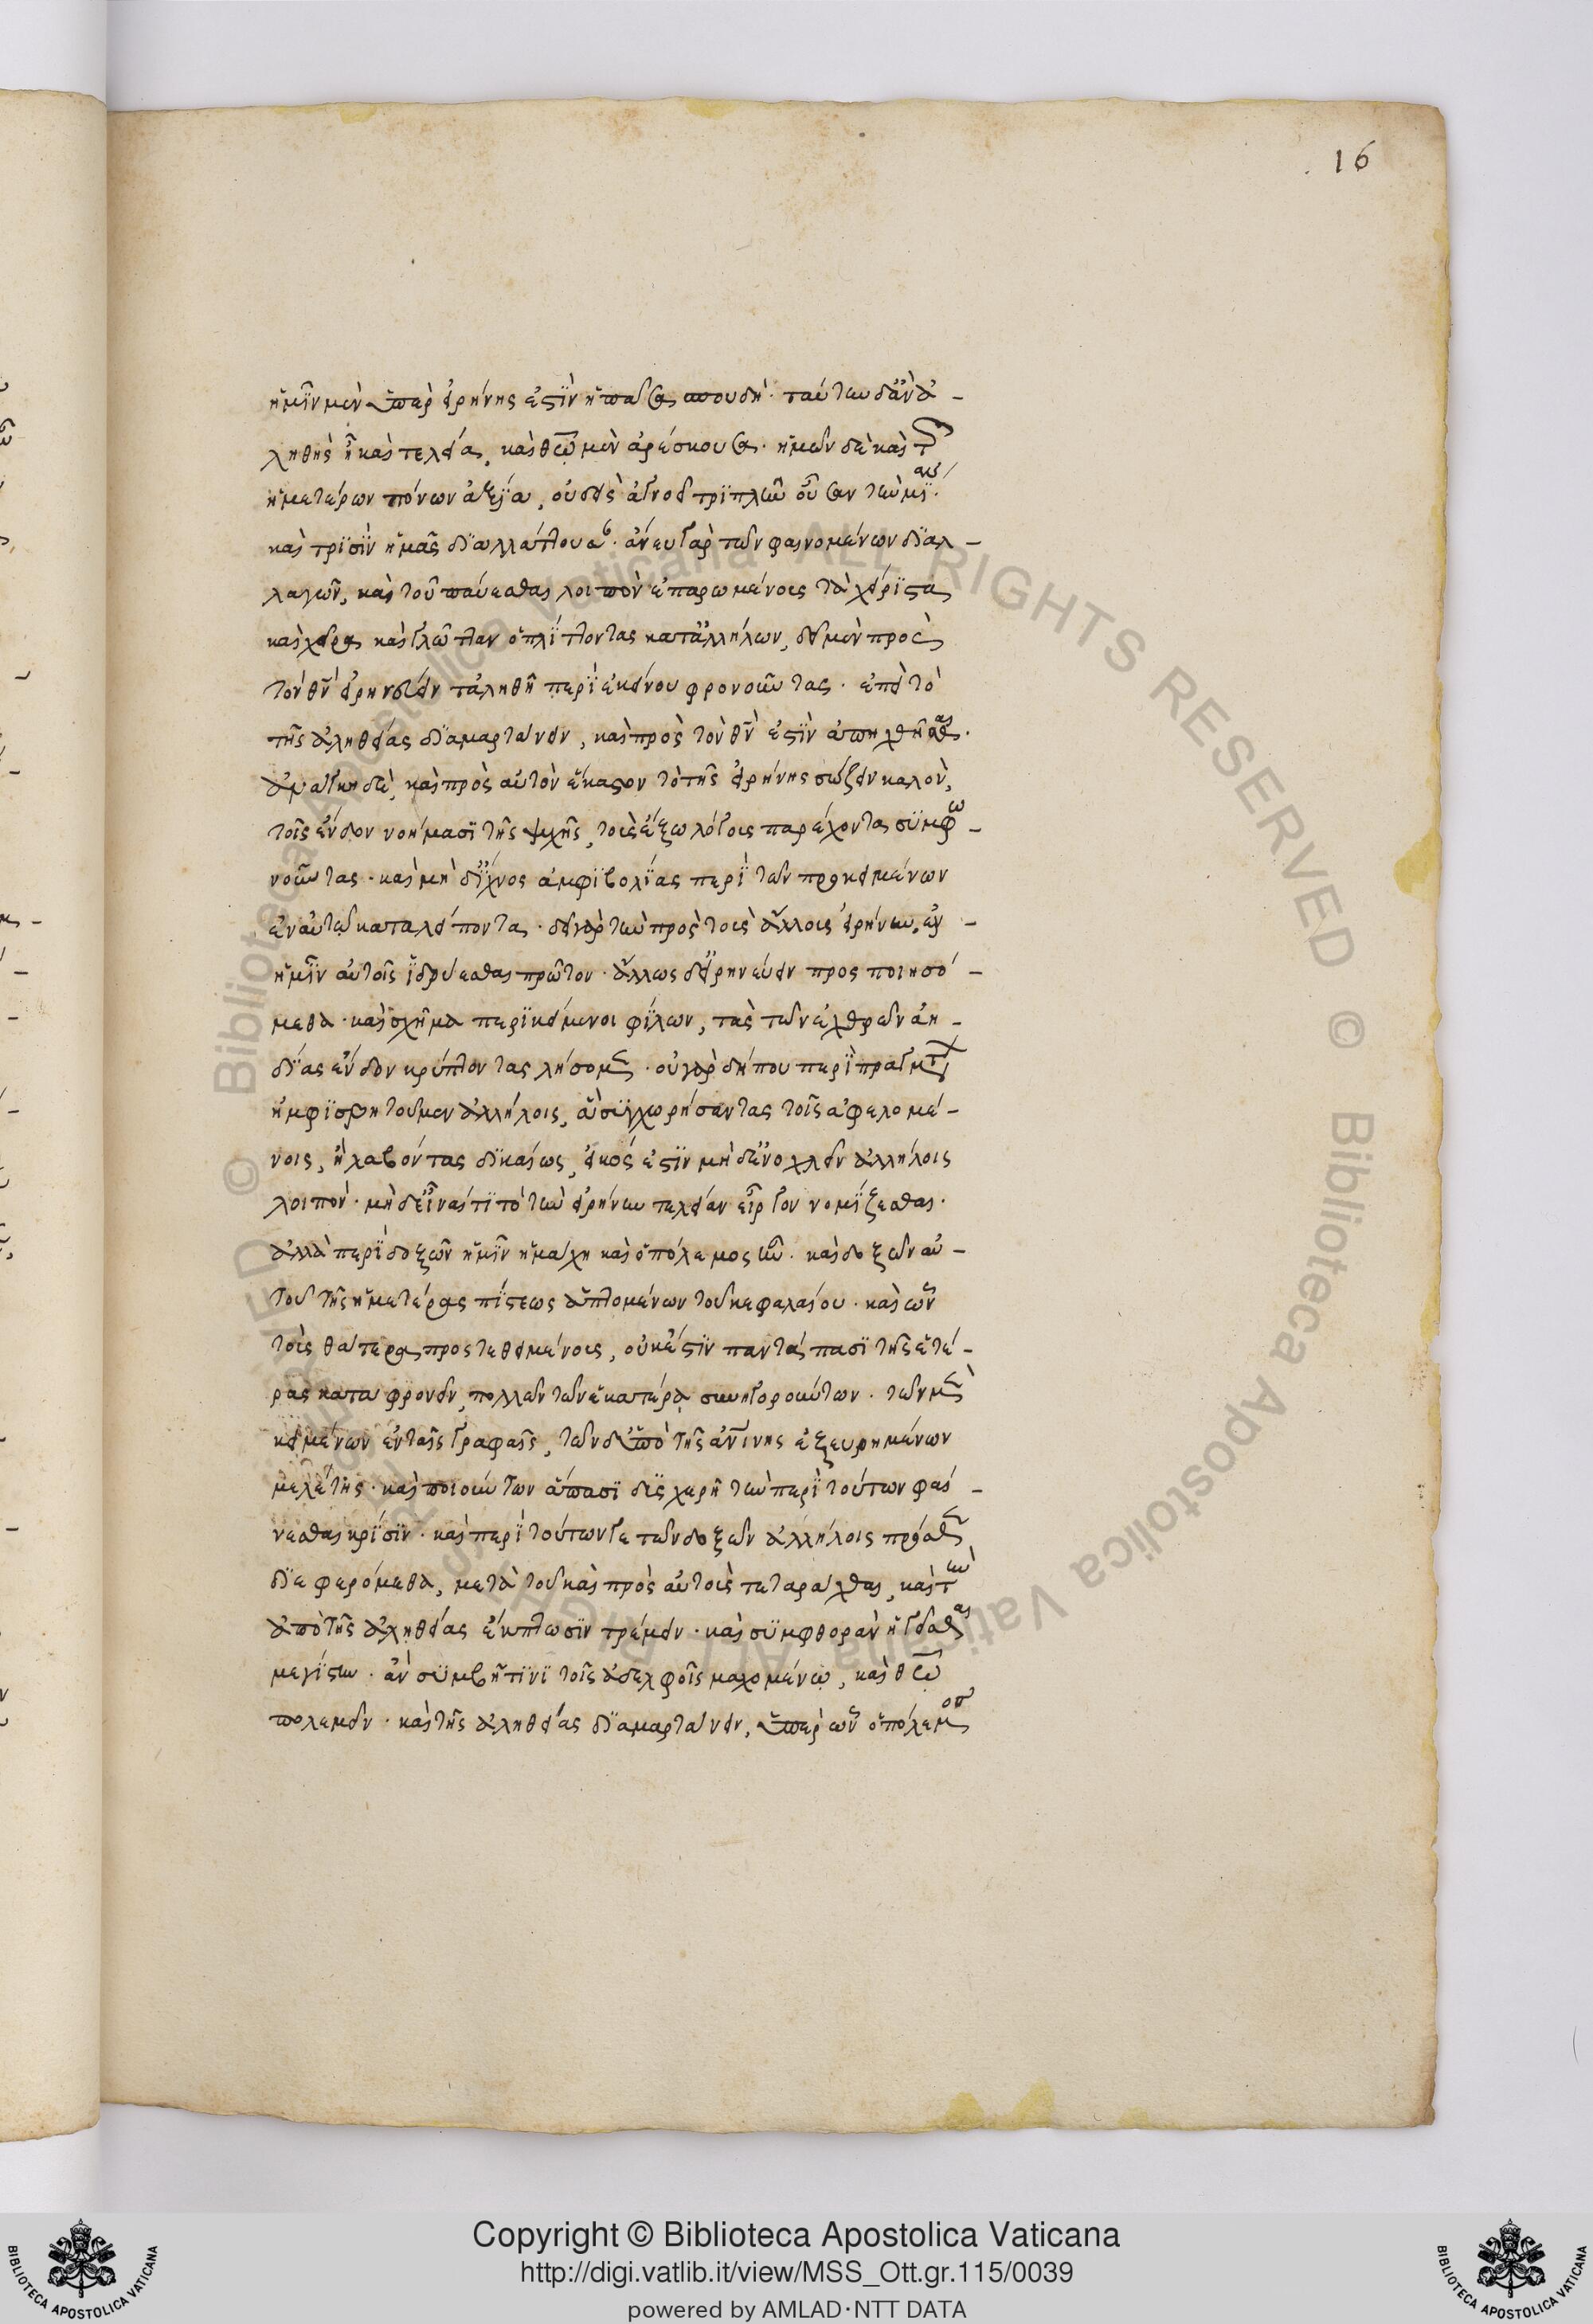 16
ἡμῖν μὲν ὑπὲρ εἰρήνης ἐστὶν ἡ πᾶσα σπουδή· ταύτην δ' ἂν ἀ-
ληθὴς ᾖ καὶ τελεία, καὶ θεῷ μὲν ἀρέσκουσα· ἡμῶν δὲ καὶ τῶν
ἡμετέρων πόνων ἀξία, οὐδεὶς ἀγνοεῖ τριπλῆν οὖσαν τὴν μίαν·
καὶ τρισὶν ἡμᾶς διαλλάττουσαν· ἄνευ γὰρ τῶν φαινομένων διαλ-
λαγῶν, καὶ τοῦ παύεσθαι λοιπὸν ἐπαρωμένους τὰ χείριστα,
καὶ χεῖρα καὶ γλῶτταν ὁπλίζοντας κατ' ἀλλήλων, δεῖ μὲν πρὸς
τὸν θν εἰρηνεύειν τἀληθῆ περὶ ἐκείνου φρονοῦντας· ἐπεὶ τὸ
τῆς ἀληθείας διαμαρτάνειν, καὶ πρὸς τὸν θν ἐστὶν ἀπηχθῆσθαι·
ἀνάγκη δὲ, καὶ πρὸς αὐτὸν ἕκαστον τὸ τῆς εἰρήνης σώζειν καλὸν,
τοῖς ἔνδον νοήμασι τῆς ψυχῆς, τοὺς ἔξω λόγους παρέχοντα συμφω-
νοῦντας· καὶ μὴ δ' ἴχνος ἀμφιβολίας περὶ τῶν προκειμένων
ἐν αὐτῷ καταλείποντα· δεῖ γὰρ τὴν πρὸς τοὺς ἄλλους εἰρήνην, ἐν
ἡμῖν αὐτοῖς ἱδρύεσθαι πρῶτον· ἄλλως δ' εἰρηνεύειν προσποιησό-
μεθα· καὶ σχῆμα περικείμενοι φίλων, τὰς τῶν ἐχθρῶν ἀη-
δίας ἔνδον κρύπτοντας λήσομεν· οὐ γὰρ δήπου περὶ πραγμάτων
ἠμφισβητοῦμεν ἀλλήλοις, ἃ συγχωρήσαντας τοῖς ἀφελομέ-
νοις, ἢ λαβόντας δικαίως, εἰκός ἐστιν μὴ δ' ἐνοχλεῖν ἀλλήλοις
λοιπόν· μὴ δ' εἶναί τι τὸ τὴν εἰρήνην τελείαν εἶργον νομίζεσθαι·
ἀλλὰ περὶ δοξῶν ἡμῖν ἡ μάχη καὶ ὁ πόλεμος ἦν· καὶ δοξῶν αὐ-
τοῦ τῆς ἡμετέρας πίστεως ἁπτομένων τοῦ κεφαλαίου· καὶ ὧν
τοῖς θατέρᾳ προστεθειμένοις, οὐκ ἔστιν παντάπασι τῆς ἑτέ-
ρας καταφρονεῖν, πολλῶν τῶν ἑκατέρᾳ συνηγορούντων· τῶν μὲν
κειμένων ἐν ταῖς γραφαῖς, τῶν δ' ὑπὸ τῆς ἀνίνης ἐξευρημένων
μελέτης· καὶ ποιούντων ἅπασι δυσχερῆ τὴν περὶ τούτων φαί-
νεσθαι κρίσιν· καὶ περὶ τούτων γε τῶν δοξῶν ἀλλήλοις πρόσθεν
διεφερόμεθα, μετὰ τοῦ καὶ πρὸς αὐτοὺς τεταράχθαι, καὶ τὴν
ἀπὸ τῆς ἀληθείας ἔκπτωσιν τρέμειν· καὶ συμφορὰν ἡγεῖσθαι
μεγίστην· ἂν συμβῇ τινὶ τοῖς ἀδελφοῖς μαχομένῳ, καὶ θεῷ
πολεμεῖν· καὶ τῆς ἀληθείας διαμαρτάνειν, ὑπὲρ ὧν ὁ πόλεμος
Copyright © Biblioteca Apostolica Vaticana
http://digi.vatlib.it/view/MSS_Ott.gr.115/0039
powered by AMLAD·NTT DATA